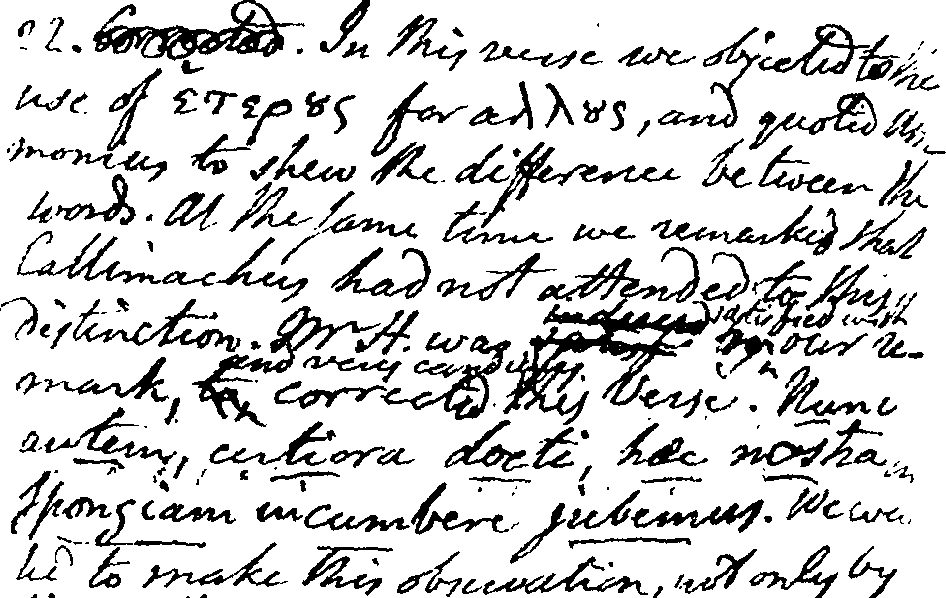 22. Corrected. In this verse we objected to the
use of ετερȣς for αλλȣς, and quoted Am-
monius to shew the difference between the
words. At the same time we remarked that
Callimachus had not attended to this
distinction. Mr H. was induced satisfied with our re-
mark, to, and very candidly corrected this verse. Nunc
autem, certiora docti, hæc nostra
spongiam incumbere jubemus. We were
led to make this observation, not only by